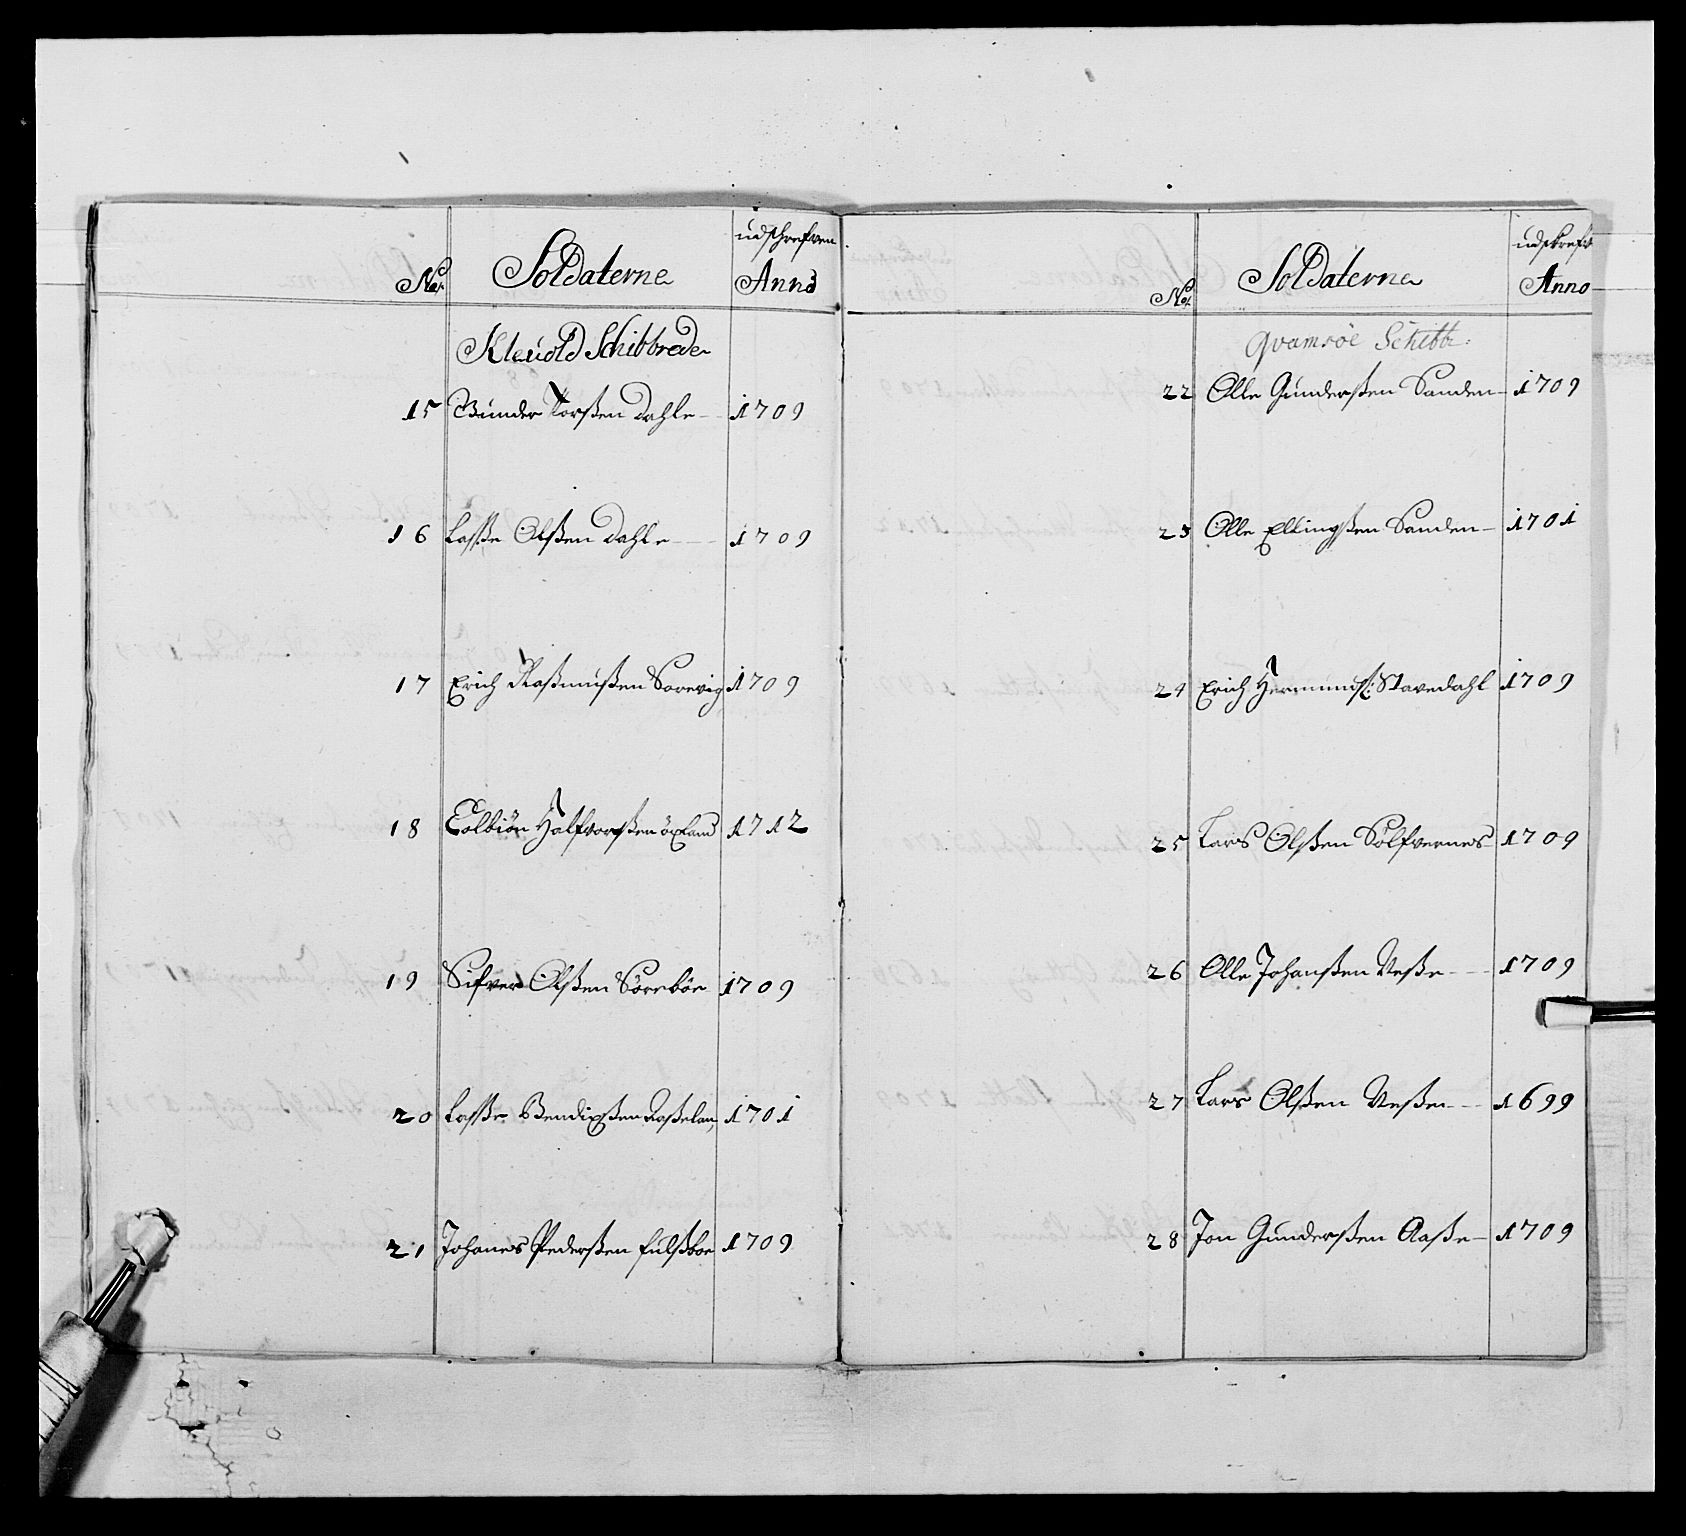 No: Soldaterne udschrefven Anno
Kleuold Schibbrede
15 Gunder Torßen Dahle 1709
16 Laße Olßen Dahle 1709
17 Erich Raßmußen Sorevig 1709
18 Colbiön Halfvorßen öxland 1712
19 Sifver Olßen Söreböe 1709
20 Laße Bendixßen 1701
21 Johanes Pederßen fulßboe 1709
No: Soldaterne udskrefv Anno
Qvamsöe Schibb:
22 Olle Gunderßen Sanden 1709
23 Olle Ellingßen Sanden 1701
24 Erich Hermundß: Stavedahl 1709
25 Lars Olßen Sölfvernes 1709
26 Olle Johanßen Neße 1709
27 Lars Olßen Neße 1699
28 Jon Gunderßen Aaße 1709